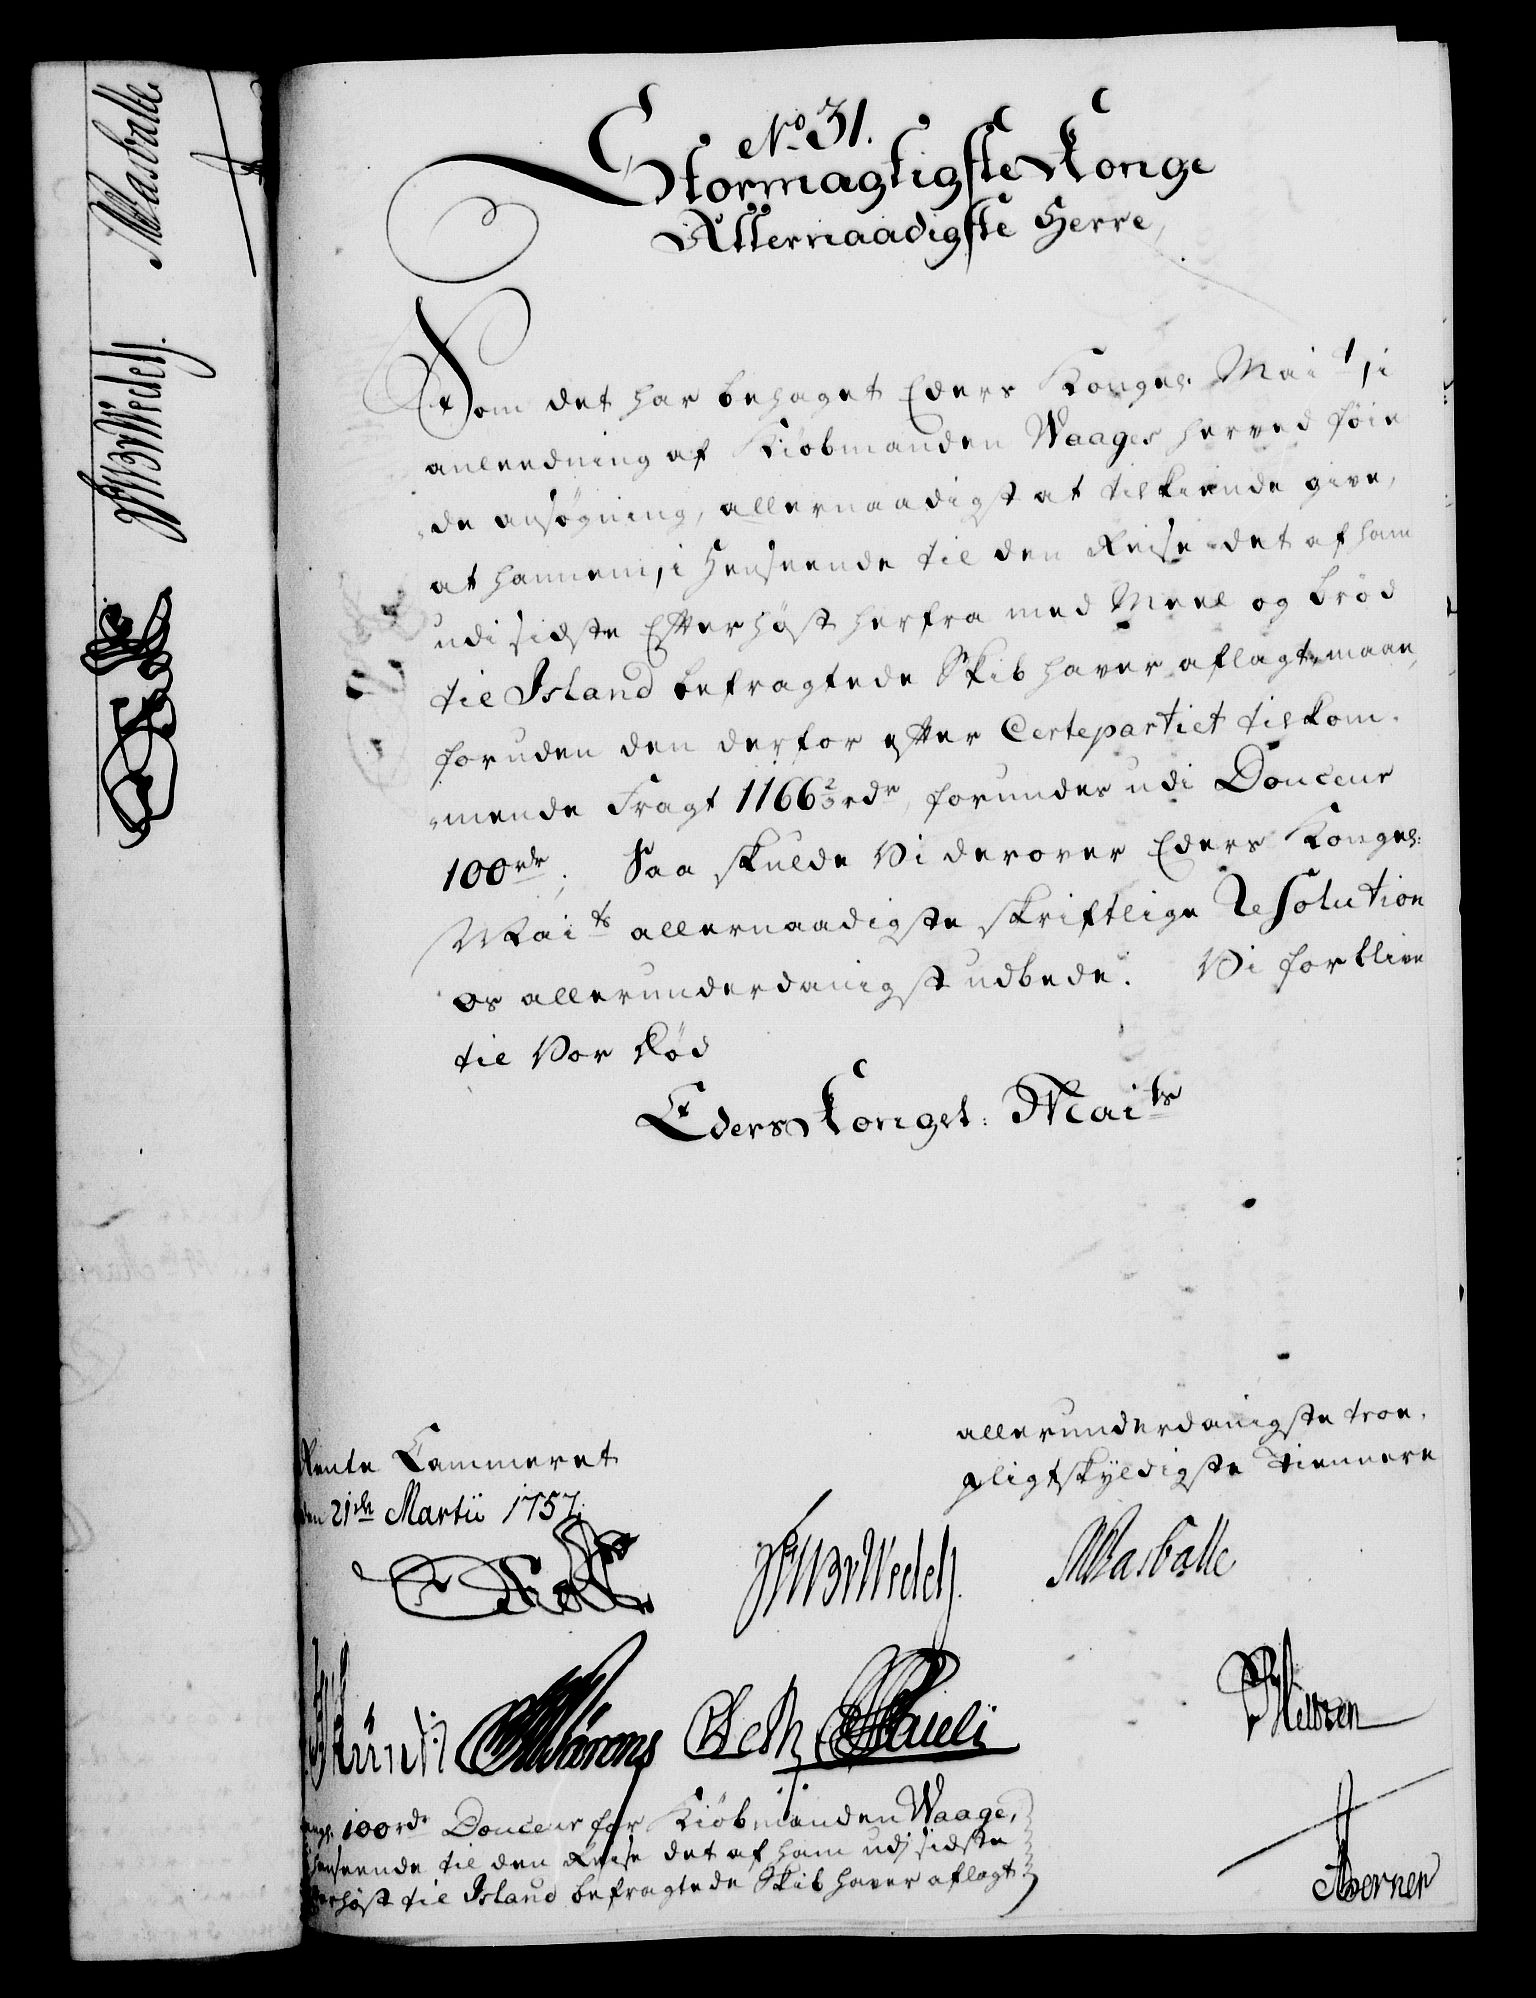 No 31.
Stormagtigste Konge
Allernaadigste Herre,
Som det har behaget Eders Kongel. Mait, i
anleedning af Kiöbmanden Waages herved föie
de ansögning, allernaadigst at tilkiende give,
at hannem, i Henseende til den Reise det af ham
udi sidste Efterhöst herfra med Meel og bröd
til Island befragtede Skib haver aflagt, maae,
foruden den derfor efter Certepartiet tilkom¬
mende Fragt 1166 2/3 rdr, forundes udi Douceur
100 rdr; Saa skulde Vi derover Eders Kongel:
Maits allernaadigste skriftlige Resolution
os allerunderdanigst udbede. Vi forblive
til Vor död
Eders Kongel: Maits
allerunderdanigste troe¬
pligtskyldigste Tiennere
Rente Cammeret
den 21de Martii 1757.
Wedel
Masballe
Pauli
100 rdr Douceur for Kiöbmanden Waage,
Henseende til den Reise det af ham udj sidste
Efterhöst til Island befragtede Skib haver aflagt
Masballe
Wedel